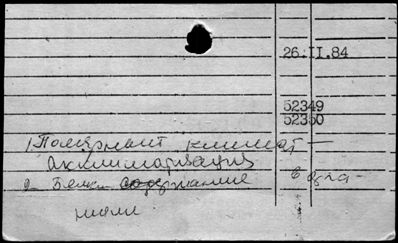 26.II.84
52349
52350
1) Полярный климат —
акклиматизация
2 – Белки содержание в